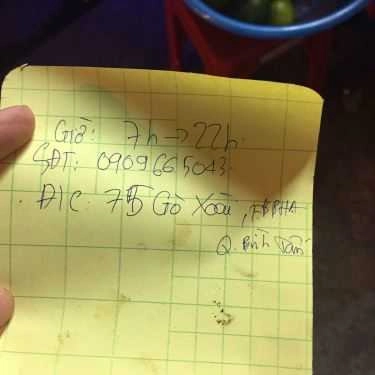 Giờ: 7h → 22h.
SĐT: 0909665043.
Đ/C: 75 Gò Xoài, P.BHHA
Q. Bình Tân